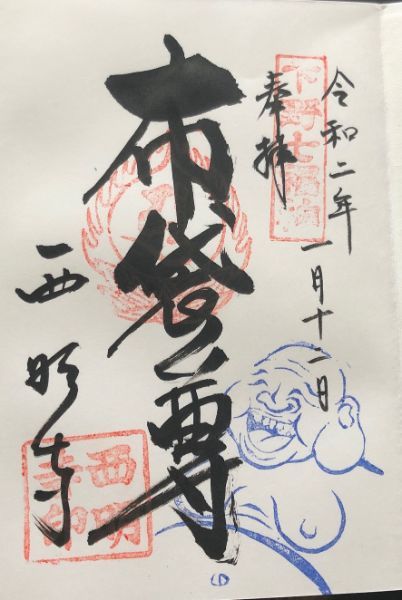 令和二年 一月十二日
下野七福神
奉拝
布袋尊
西明寺
西明寺印